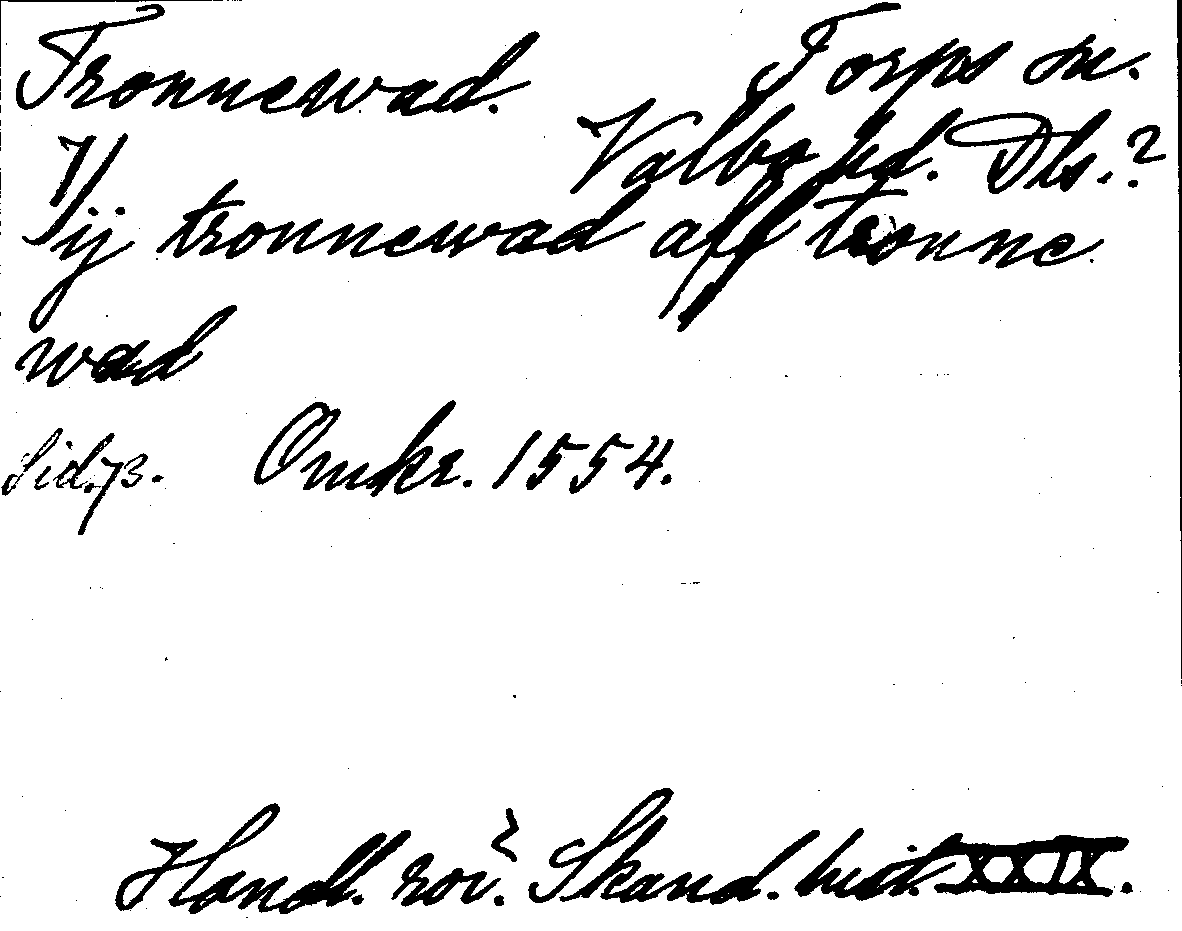 Tronnewad. Torps sn.
Valbo hd. Dls.?
1/ ij tronnewad aff tronne
wad
Sid. 73. Omkr. 1554.
Handl. rör. Skand. hist. XXIX.